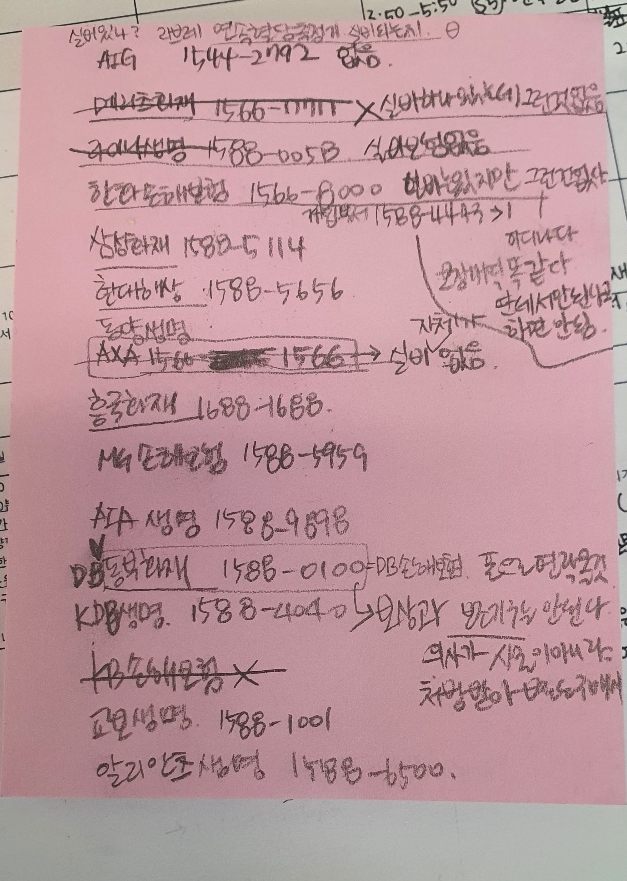 12:50-5:50
실비있나? 리브레 연속혈당측정기 실비되는지.
AIG 1544-2792 없음
메리츠화재 1566-7711 X 실비하나 있는데 그런것없음
라이나생명 1588-0058 실비보험없음
한화손해보험 1566-8000 실비는있지만 그런건
가입부서 1588-4443 > 1
삼성화재 1588-5114
어디나다
보장내역 똑같다
현대해상 1588-5656
딴데서 안된다고
하면 안됨.
동양생명
AXA 1566 1566 → 실비 자체가 없음.
흥국화재 1688-1688.
MG손해보험 1588-5959
AIA 생명 1588-9898
DB 동부화재 1588-0100 = DB손해보험. 폰으로 연락올것
KDB생명. 1588-4040 → 보상과 받은기구는 안된다
의사가 시술이 아니라
KB손해보험 X
처방받아 본인이 구매해서
교보생명. 1588-1001
알리안츠생명 1588-6500.